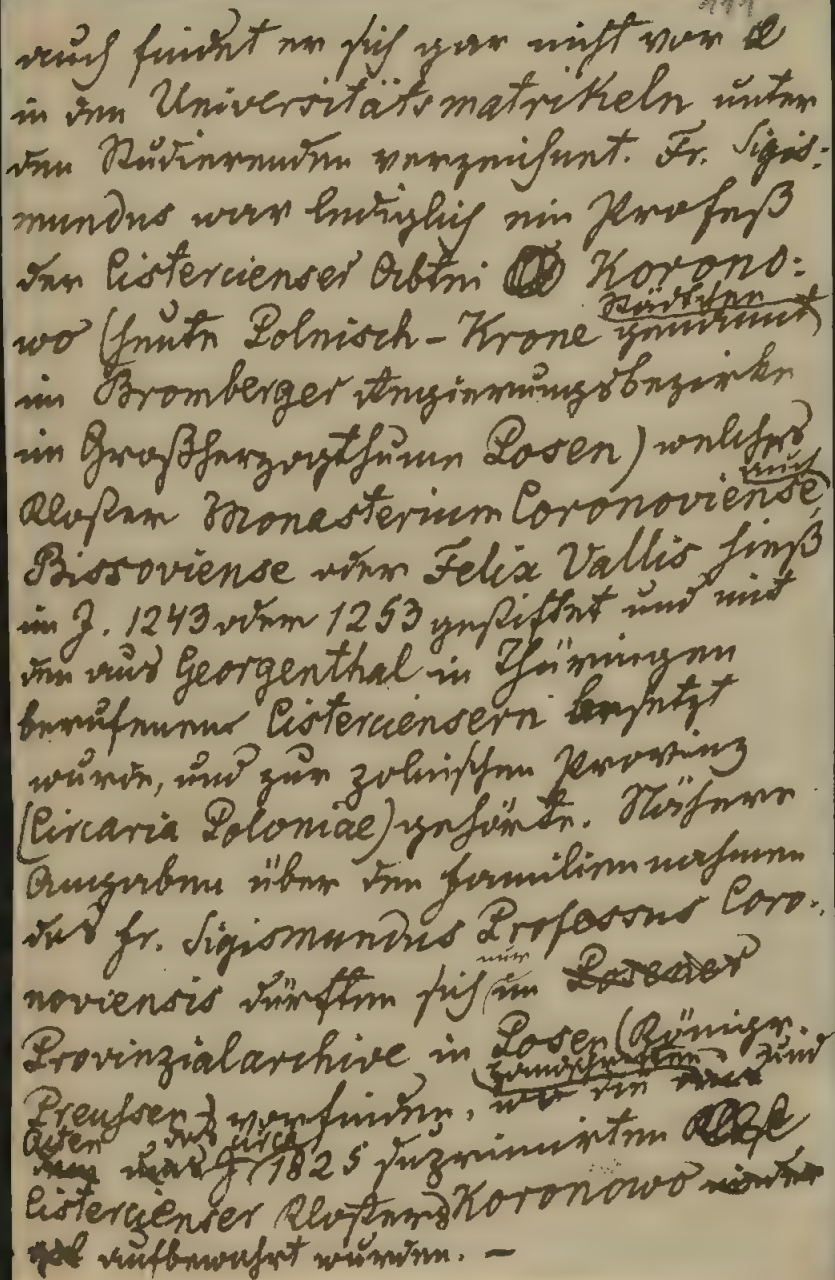 auch findet er sich gar nicht vor
in den Universitätsmatrikeln unter
den Studierenden verzeichnet. Fr. Sigis:
mundus war lediglich ein Profeß
der Cistercienser Abtei Korono:
wo (heute Polnisch-Krone Städtchen genannt
im Bromberger Regierungsbezirke
im Großherzogthume Posen) welches
Kloster Monasterium Coronoviense, auch
Bissoviense oder Felix Vallis hieß
im J. 1243 oder 1253 gestiftet und mit
den aus Georgenthal in Thüringen
berufenen Cisterciensern besetzt
wurde, und zur polnischen Provinz
(Circaria Poloniae) gehörte. Nähere
Angaben über den Familiennahmen
des Fr. Sigismundus Professus Coro:
noviensis dürften sich nur im
Provinzialarchive in Posen (Königr.
Preussen) vorfinden, wo die Handschriften und
Akten des circa 1825 supprimirten
Cistercienser Klosters Koronowo
aufbewahrt wurden. —